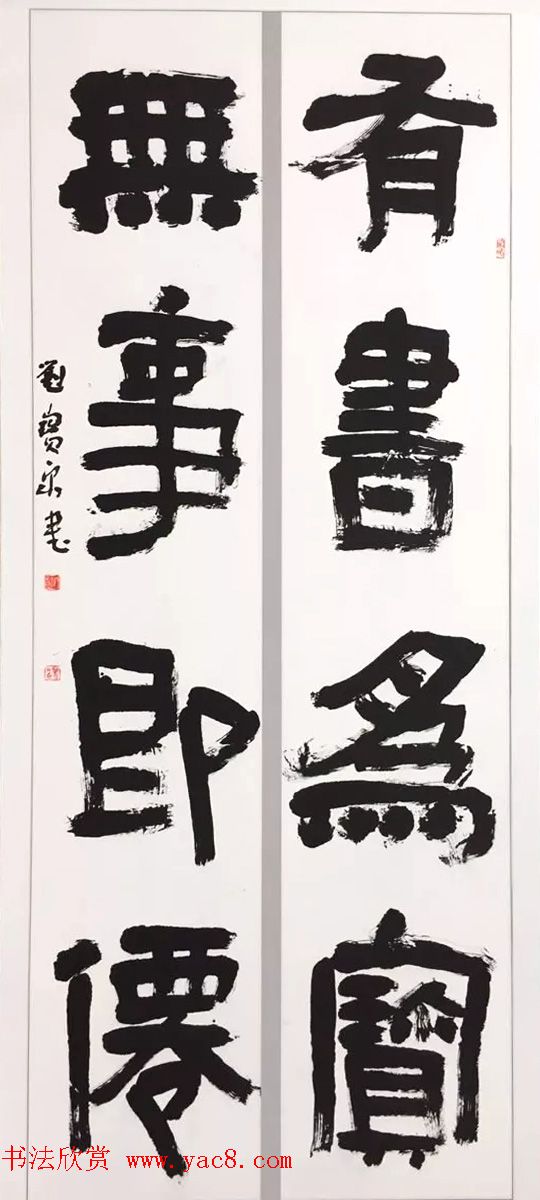 有書為寶
無事即僊
劉寶泉書
书法欣赏 www.yac8.com